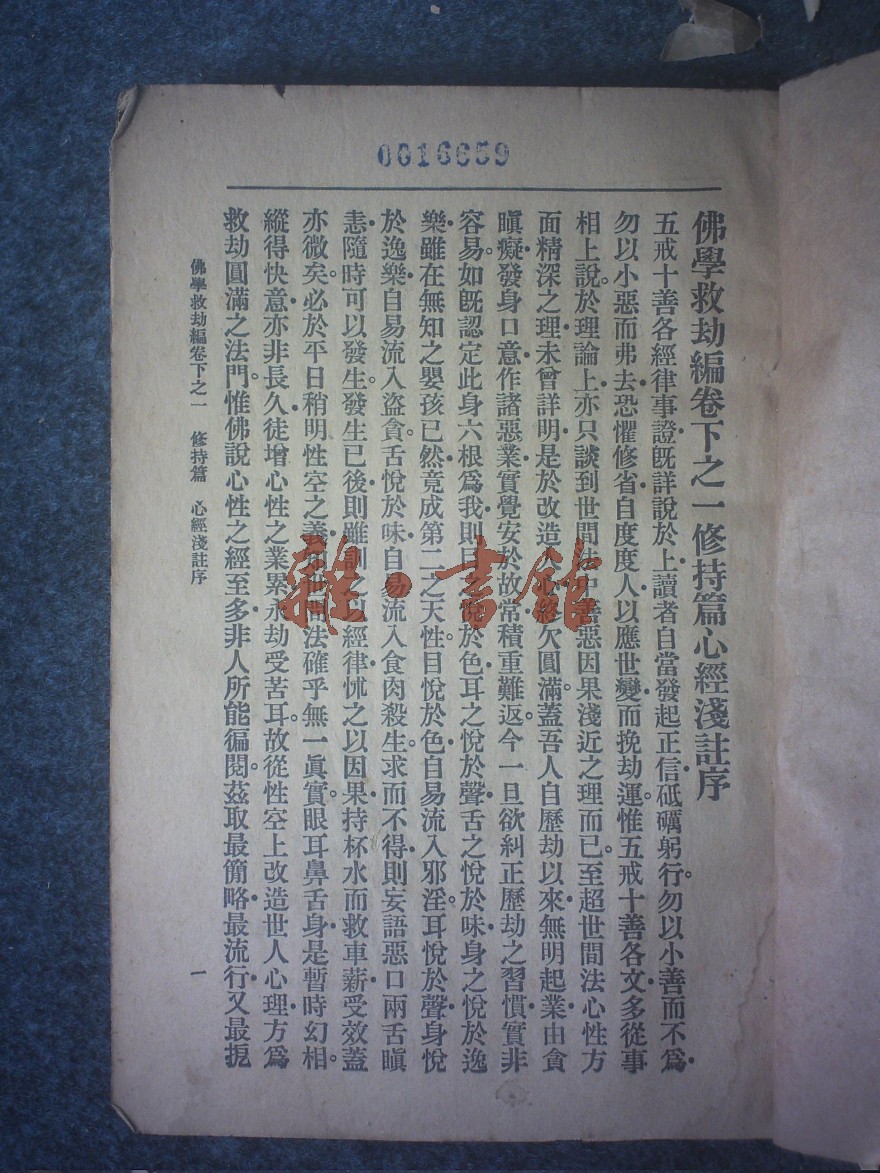 0016659
佛學救劫編卷下之一修持篇心經淺註序
五戒十善各經律事證既詳說於上讀者自當發起正信砥礪躬行。勿以小善而不爲
勿以小惡而弗去恐懼修省自度度人以應世變而挽劫運惟五戒十善各文多從事
相上說於理論上亦只談到世間法中善惡因果淺近之理而已。至超世間法心性方
面精深之理未曾詳明是於改造人心終欠圓滿。蓋吾人自歷劫以來無明起業由貪
瞋癡發身口意作諸惡業實覺安於故常積重難返今一旦欲糾正歷劫之習慣實非
容易。如既認定此身六根爲我則目之悅於色耳之悅於聲舌之悅於味身之悅於逸
樂雖在無知之嬰孩已然竟成第二之天性目悅於色自易流入邪淫。耳悅於聲身悅
於逸樂自易流入盜貪。舌悅於味自易流入食肉殺生。求而不得則妄語惡口兩舌瞋
恚隨時可以發生。發生已後則雖訓之以經律怵之以因果持杯水而救車薪受效蓋
亦微矣。必於平日稍明性空之義知世間法確乎無一眞實。眼耳鼻舌身是暫時幻相
縱得快意亦非長久徒增心性之業累永劫受苦耳。故從性空上改造世人心理方爲
救劫圓滿之法門惟佛說心性之經至多非人所能徧閱。茲取最簡略最流行又最扼
佛學救劫編卷下之一 修持篇 心經淺註序
一
雜·書館